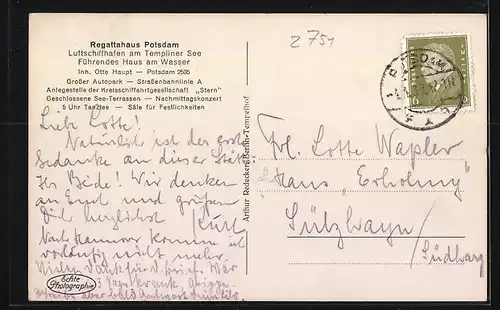 2751
Regattahaus Potsdam
Luftschiffhafen am Templiner See
Führendes Haus am Wasser
Inh. Otto Haupt — Potsdam 2535
Großer Autopark — Straßenbahnlinie A
Anlegestelle der Kreisschiffahrtgesellschaft „Stern"
Geschlossene See-Terrassen — Nachmittagskonzert
5 Uhr Tanztee — Säle für Festlichkeiten
Liebe Lotte!
Natürlich ist der erste
Gedanke an dieser Stätte
Ihr Beide! Wir denken
an Euch und grüßen
Dich herzlichst Kurt
Nach Hannover komme ich
vorläufig nicht mehr.
Vielen Dank für d. Brief. War
3 Tage krank, Grippe
aber bald Antwort
Echte Photographie
Arthur Redecker, Berlin-Tempelhof
Frl. Lotte Wapler
Haus „Erholung"
Lützhvayn/
Südharz